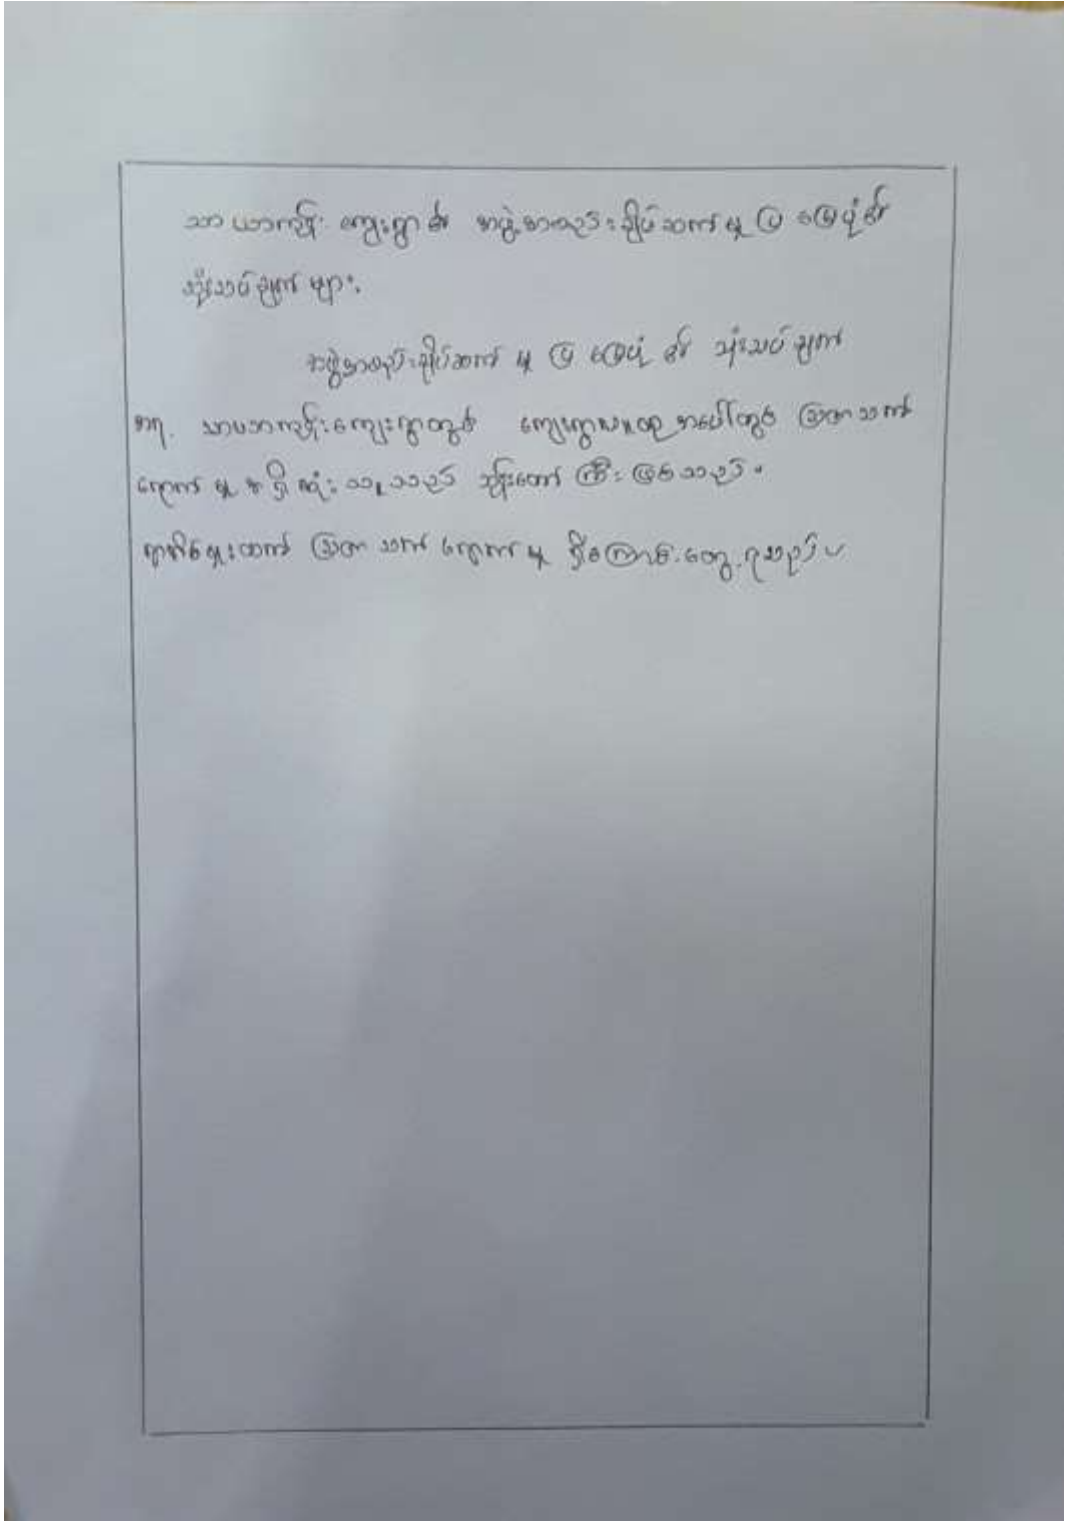 သာယာကုန်း ကျေးရွာ ၏ အဖွဲ့အစည်းချိပ်ဆက်မှု ပြ မြေပုံ၏
သုံးသပ်ချက် များ
အဖွဲ့အစည်းချိပ်ဆက် မှု ပြ မြေပုံ ၏ သုံးသပ် ချက်
အရ သာယာကုန်းကျေးရွာတွင် ကျေးရွာလူထု အပေါ်တွင် ဩဇာသက်
ရောက် မှု အရှိ ဆုံး သူသည် ဘုန်းတော် ကြီး ဖြစ်သည်။
ဩဇာ သက် ရောက် မှု ရှိကြောင်းတွေ့ ရသည်။